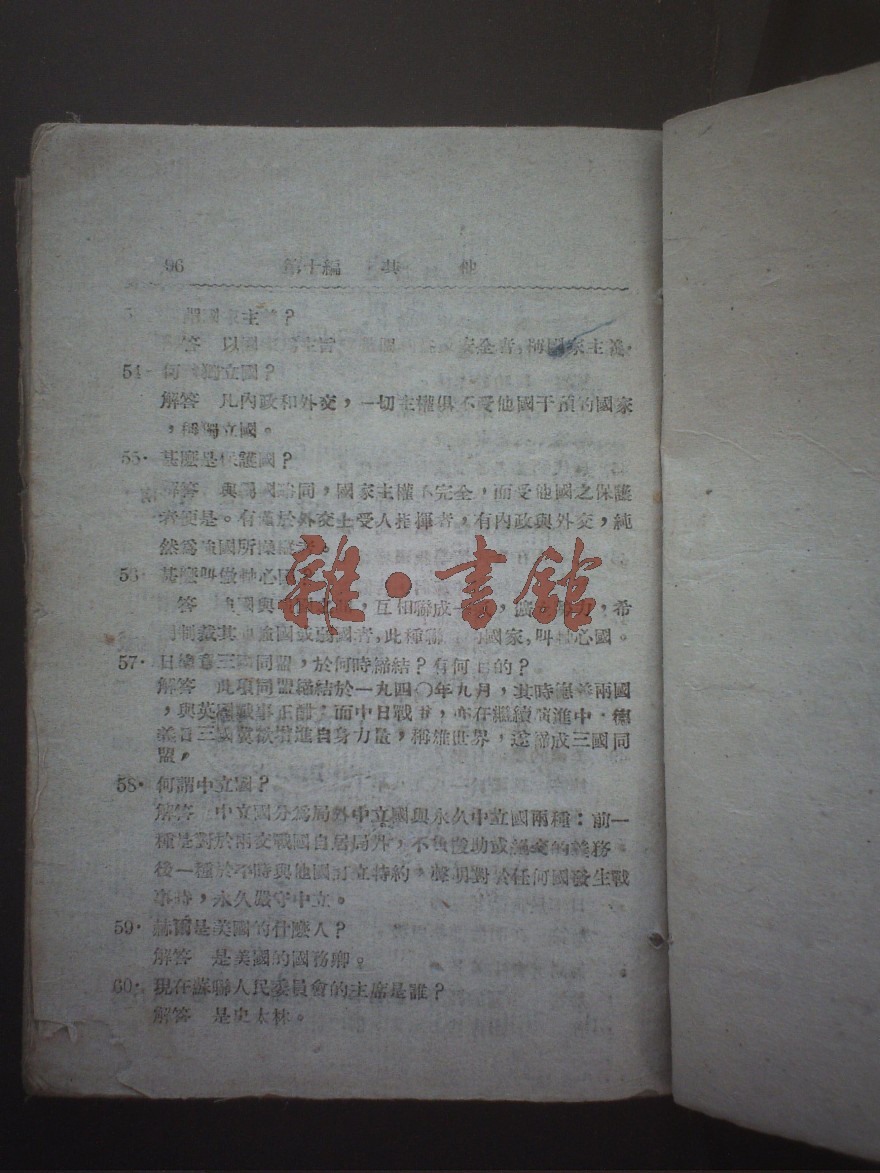 96 第十編 其 他
國家主義？
答 以國 主旨 安全者，稱國家主義。
54· 何 獨立國？
解答 凡內政和外交，一切主權俱不受他國干預的國家
，稱獨立國。
55· 甚麼是保護國？
解答 與 國 同，國家主權不完全，而受他國之保護
者便是。有 於外交上受人指揮者，有內政與外交，純
然爲強國所 者。
56· 甚麼叫做軸心國
答 國與 國 ，互相聯成一 ， 力，希
制裁其 強國或弱國者，此種聯 的國家，叫軸心國。
57· 日德意三國同盟，於何時締結？有何目的？
解答 此項同盟締結於一九四〇年九月，其時德意兩國
，與英國戰事正酣，而中日戰事，亦在繼續演進中，德
意日三國冀欲增進自身力量，稱雄世界，遂締成三國同
盟，
58· 何謂中立國？
解答 中立國分爲局外中立國與永久中立國兩種：前一
種是對於兩交戰國自居局外，不負援助或 的義務。
後一種於平時與他國訂立特約，聲明對於任何國發生戰
事時，永久嚴守中立。
59· 赫爾是美國的什麼人？
解答 是美國的國務卿。
60· 現在蘇聯人民委員會的主席是誰？
解答 是史太林。
雜·書館